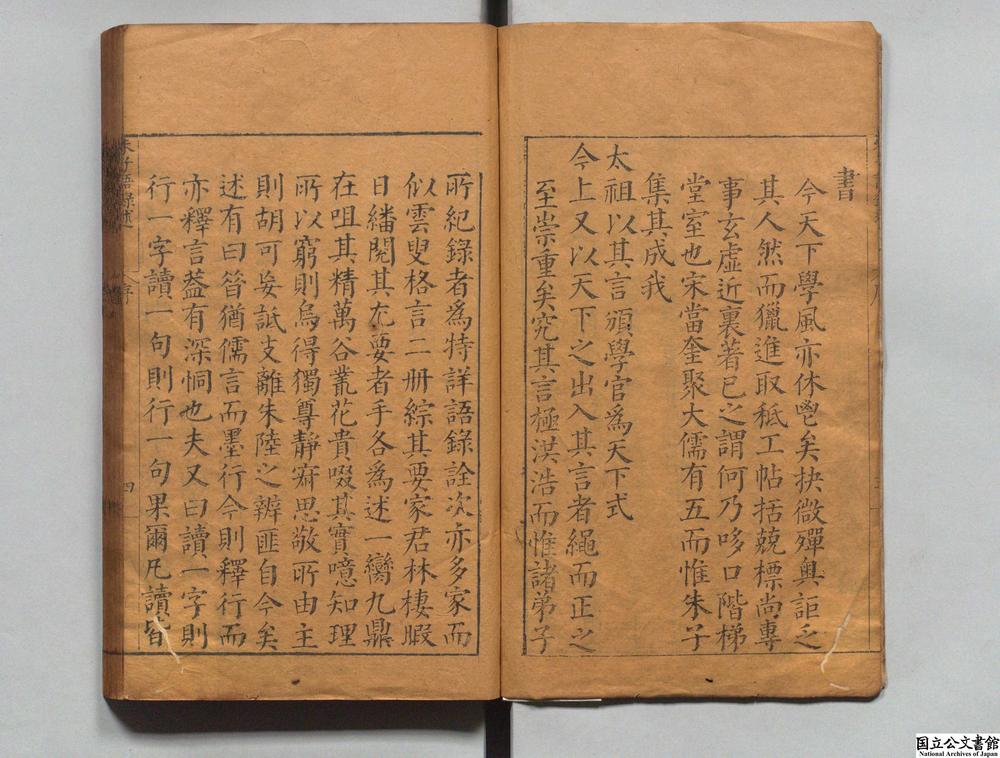 書
今天下學風亦休鬯矣抉微殫奧詎乏
其人然而獵進取秪工帖括兢標尚專
事玄虛近裏著已之謂何乃哆口階梯
堂室也宋當奎聚大儒有五而惟朱子
集其成我
太祖以其言頒學官為天下式
今上又以天下之出入其言者繩而正之
至崇重矣究其言極洪浩而惟諸弟子
所紀錄者為特詳語錄詮次亦多家而
似雲叟格言二册綜其要家君林棲暇
日繙閱其尤要者手各為述一臠九鼎
在咀其精萬谷叢花貴啜其實噫知理
所以窮則烏得獨尊靜窹思敬所由主
則胡可妄詆支離朱陸之辨匪自今矣
述有曰昝猶儒言而墨行今則釋行而
亦釋言葢有深恫也夫又曰讀一字則
行一字讀一句則行一句果爾凡讀皆
朱子語錄述
序
四
国立公文書館
National Archives of Japan